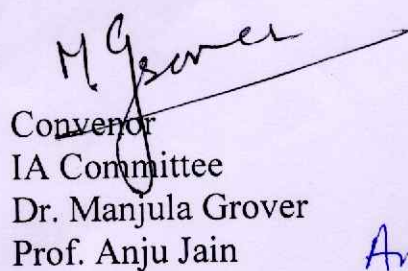 M. Grover
Convenor
IA Committee
Dr. Manjula Grover
Prof. Anju Jain